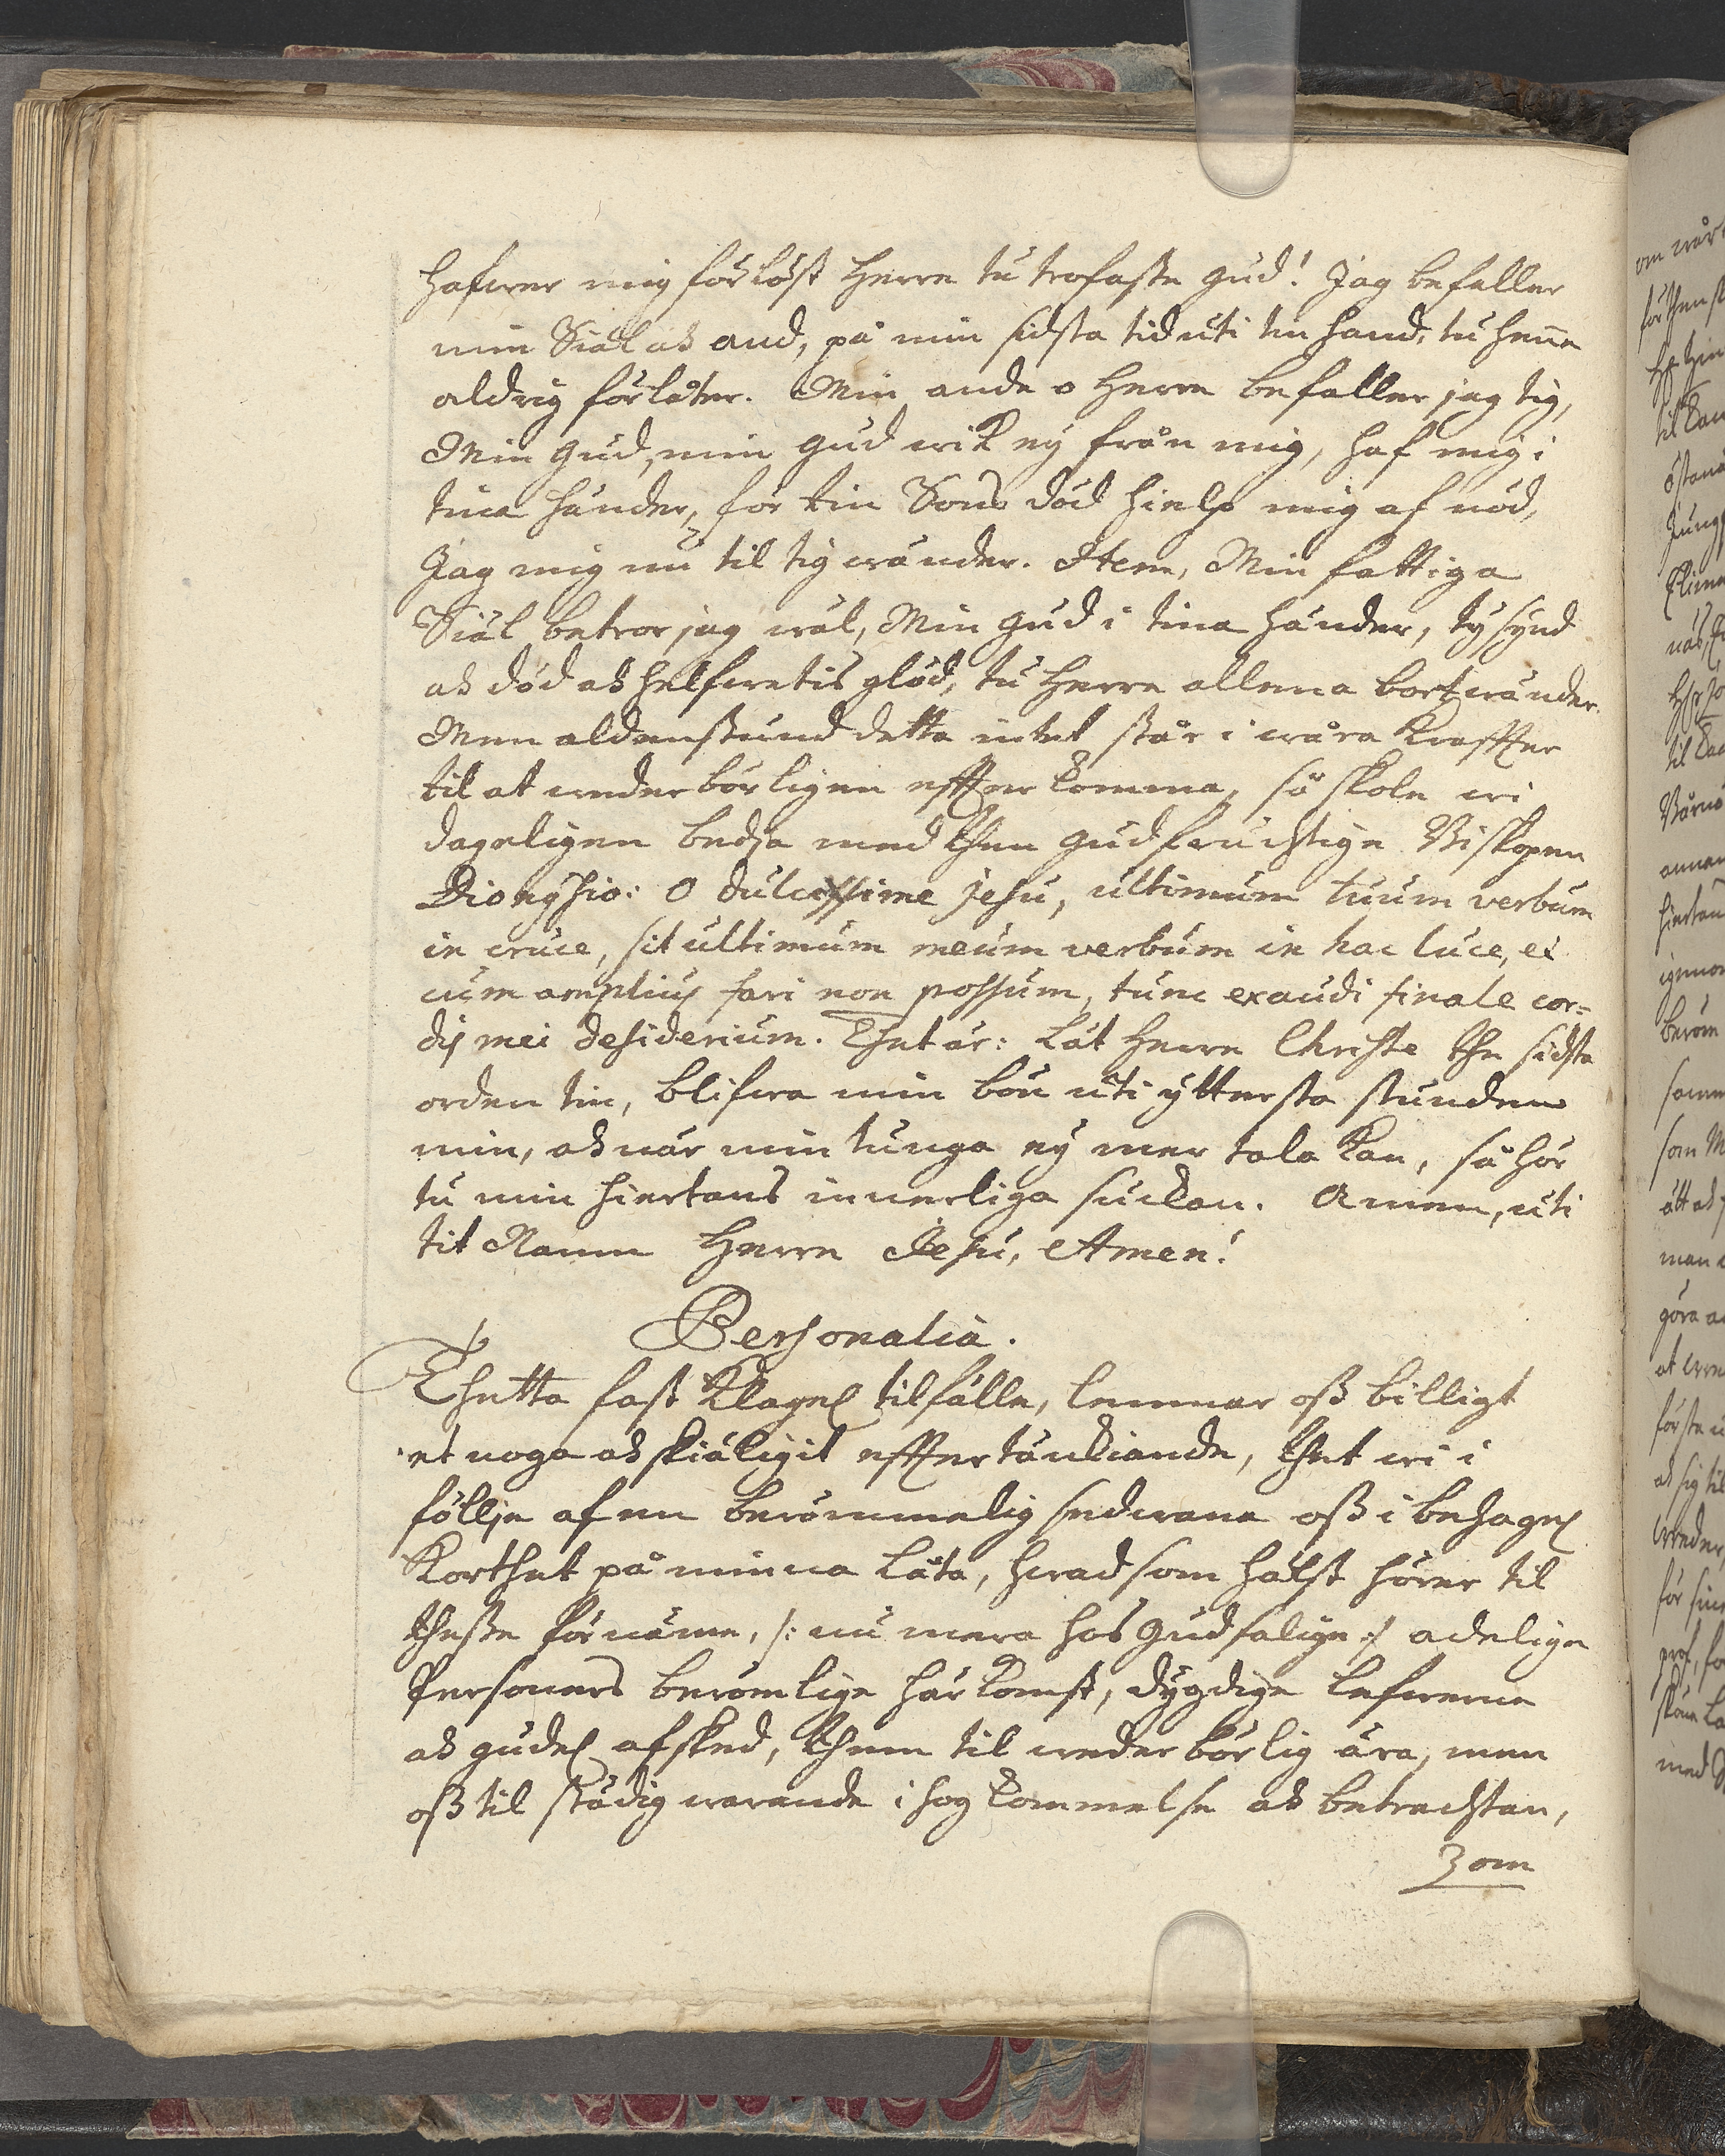 hafwer mig förlöst Herre tu trofaste Gud! Jag befaller
min Siäl och and, på min sidsta tid uti tin hand, tu henne
aldrig förlåter. Min ande o Herre befaller jag tig,
Min Gud, min Gud wik ey från mig, haf mig i
tina händer, för tin Sons död hielp mig af nöd,
Jag mig nu til tig wänder. Item, Min fattiga
Siäl betror jag wäl, Min Gud i tina händer, ty synd
och död och helfwetis glöd, tu Herre allena bortwänder.
Men aldenstund detta intet står i wåra kraffter
til at wederbörligen effterkomma, så skole wi
dageligen bedia med then gudfruchtige Biskopen
Dionysio: O dulcissime Jesu, ultimum tuum verbum
in cruce, sit ultimum meum verbum in hac luce, et
cum amplius fari non possum, tunc exaudi finale cor=
dis mei desiderium. Thet är: Låt Herre Christe the sidste
orden tin, blifwa min bön uti yttersta stunden
min, och när min tunga ey mer tala kan, så hör
tu min hiertans innerliga suckan. Amen, uti
tit Namn Herre Jesu, Amen!
Personalia.
Thetta fast klagel. tilfälle, lemnar oss billigt
et noga och skiäligit efftertänkiande, thet wi i
föllje af en berömmelig sedwana oss i behagel.
korthet på minna låta, hwad som hälst hörer til
thesse förnäme, /: nu mera hos Gud salige :/ adelige
Personers berömlige härkomst, dygdige lefwerne
och gudel. afsked, them til wederbörlig ära, men
oss til städig warande ihogkommelse och betrachtan,
3 om